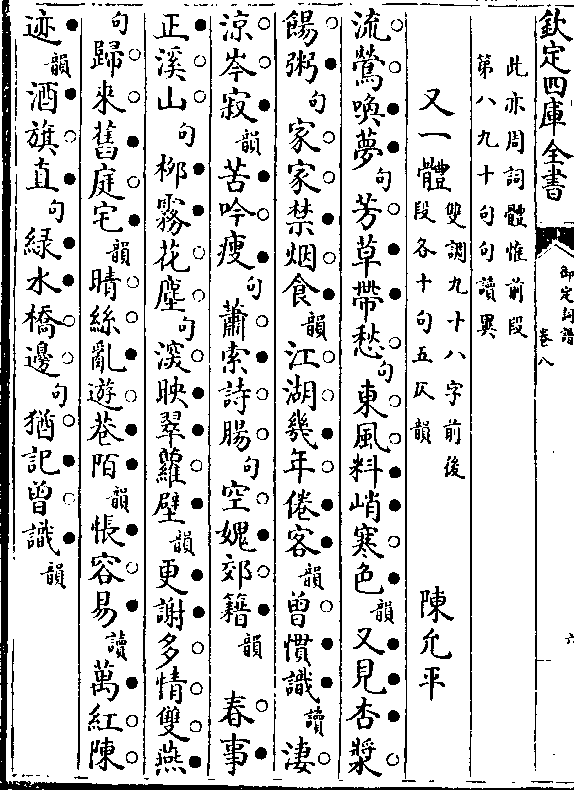 欽定四庫全書
御定詞譜
卷八
六
此亦周詞體惟前段
第八九十句句讀異
又一體
雙調九十八字前後
段各十句五仄韻
陳允平
流鶯喚夢句芳草帶愁句東風料峭寒色韻又見杏漿
餳粥句家家禁烟食韻江湖幾年倦客韻曾慣識讀淒
涼岑寂韻苦吟瘦句蕭索詩腸句空媿郊籍韻 春事
正溪山句柳霧花塵句深映翠蘿壁韻更謝多情雙燕
句歸來舊庭宅韻晴絲亂遊巷陌韻悵容易讀萬紅陳
迹韻酒旗直句綠水橋邊句猶記曾識韻